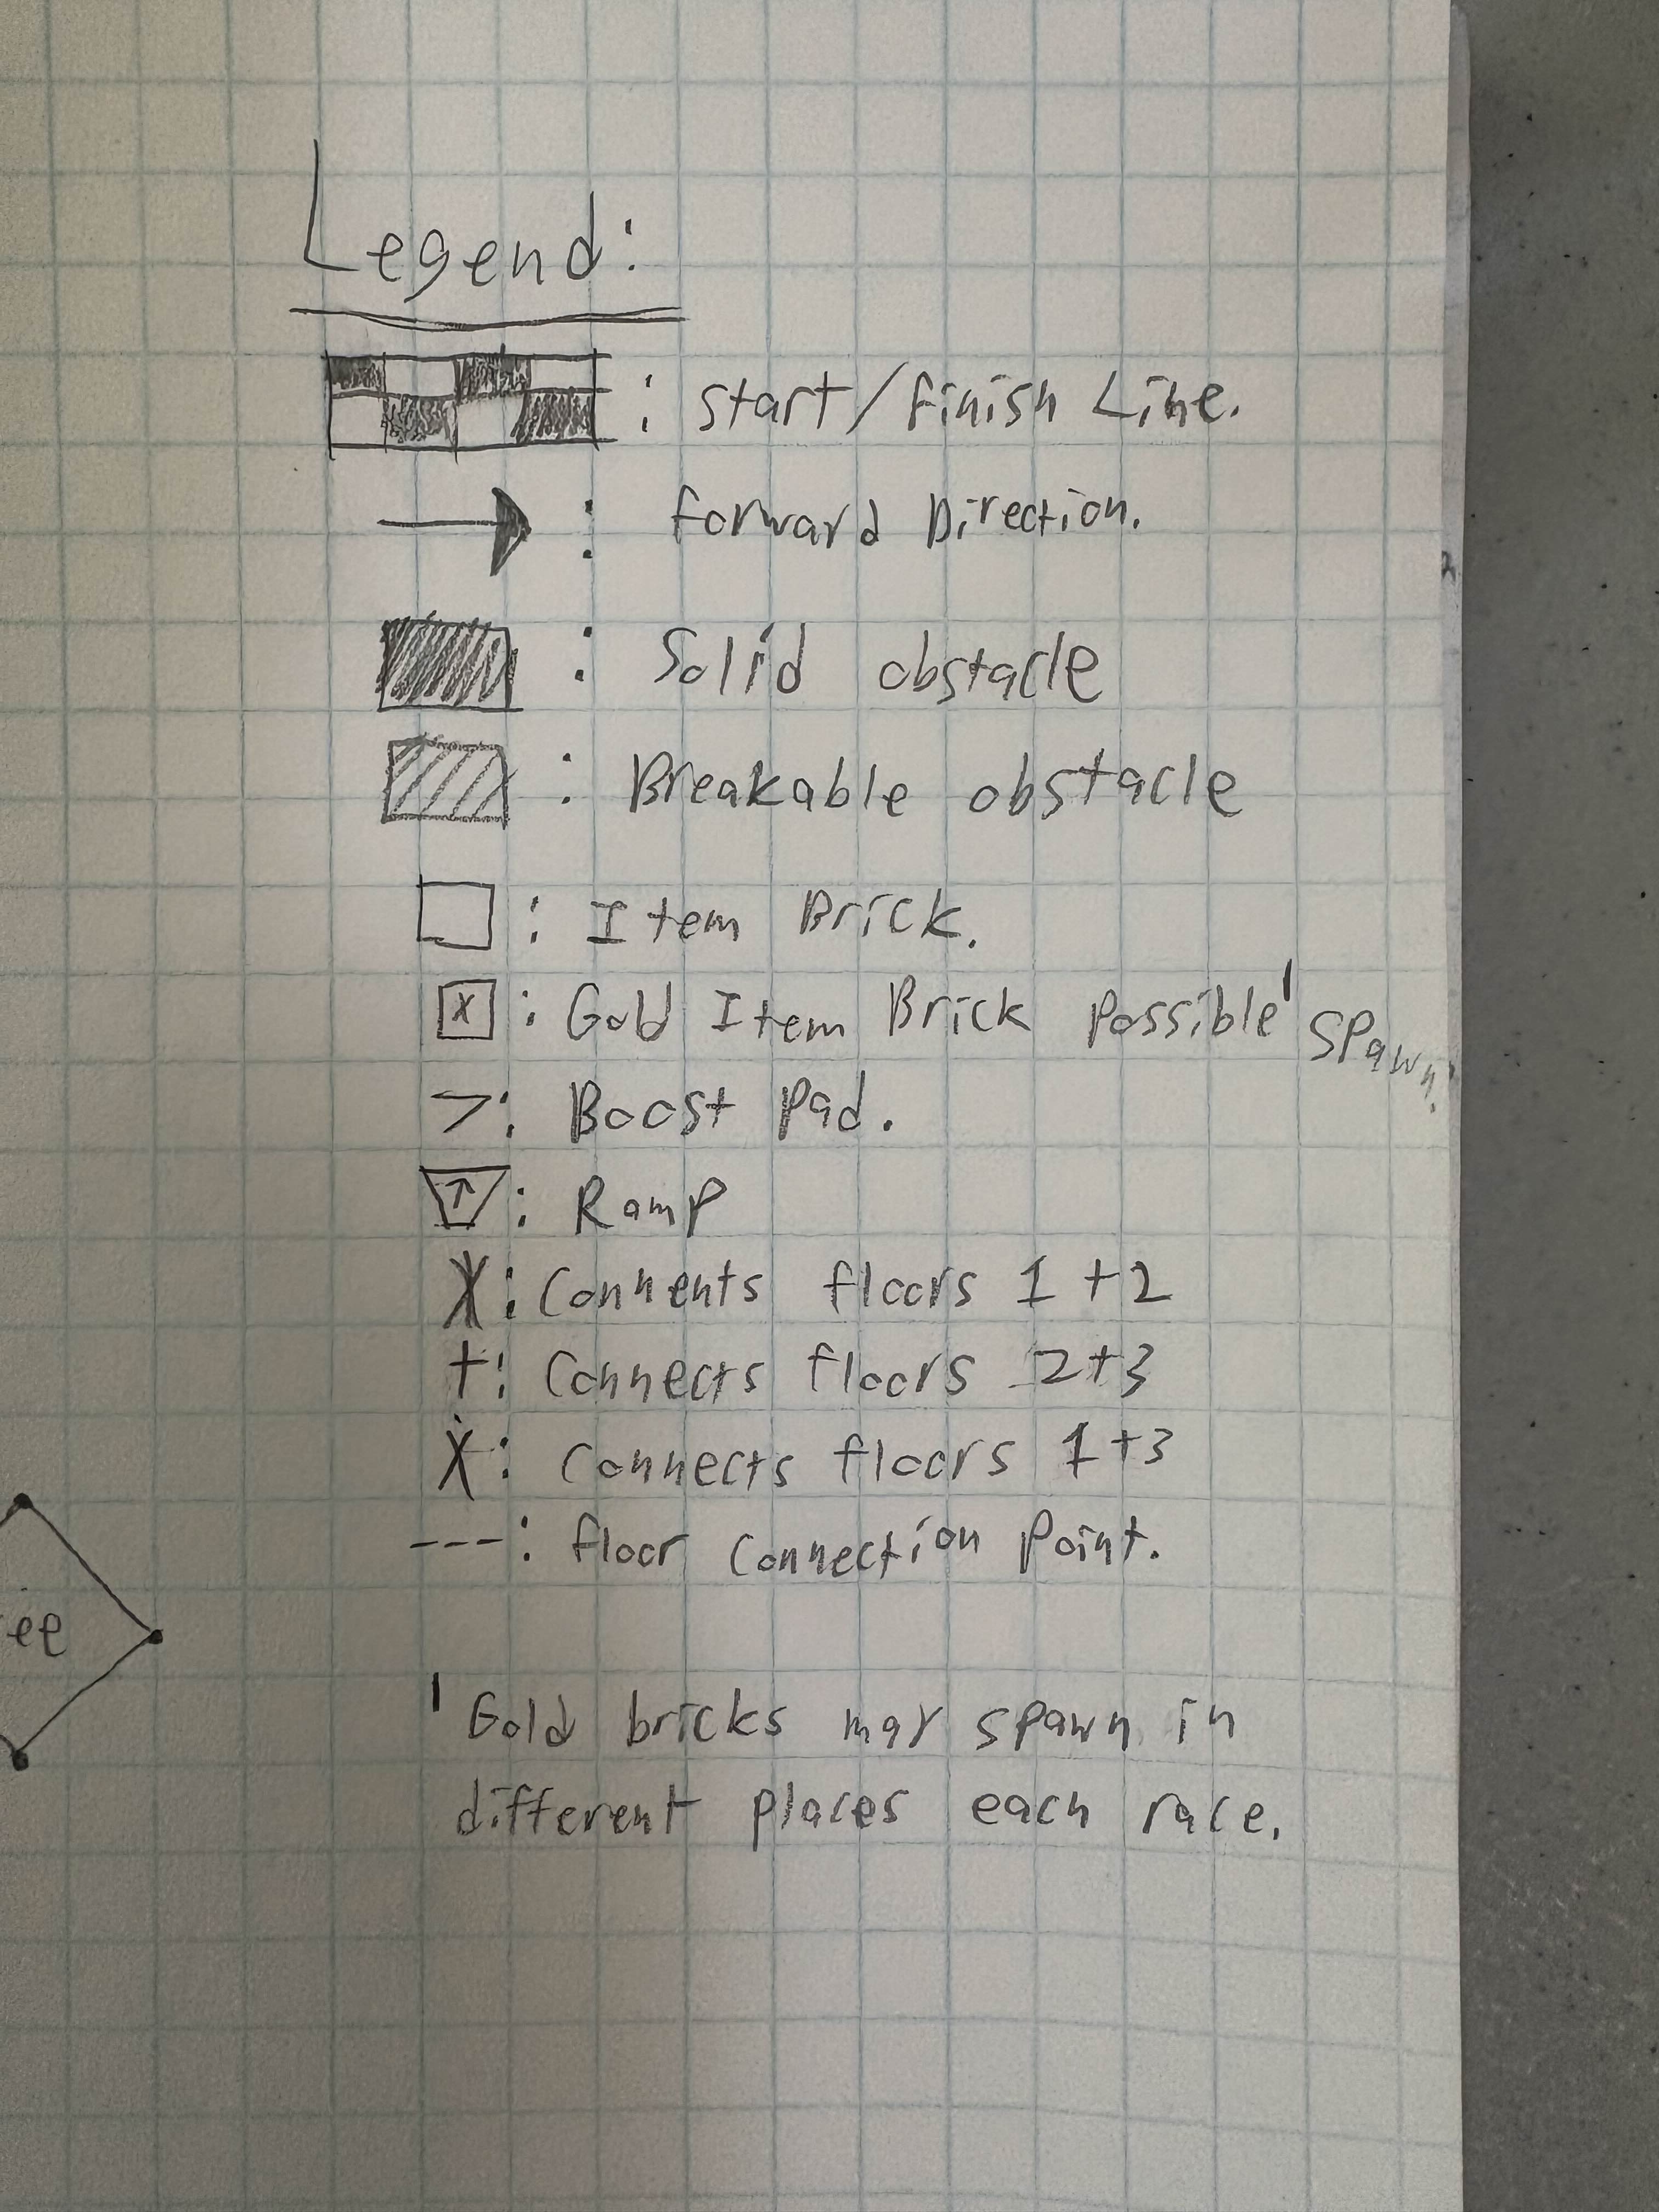 Legend:
: Start/Finish Line.
: forward Direction.
: Solid obstacle
: Breakable obstacle
: Item Brick.
x : Gold Item Brick Possible¹ Spawn.
>: Boost Pad.
↑ : Ramp
X: Connents floors 1+2
+: Connects floors 2+3
Ẋ: Connects floors 1+3
---: floor Connection Point.
ee
¹ Gold bricks may spawn in
different places each race.